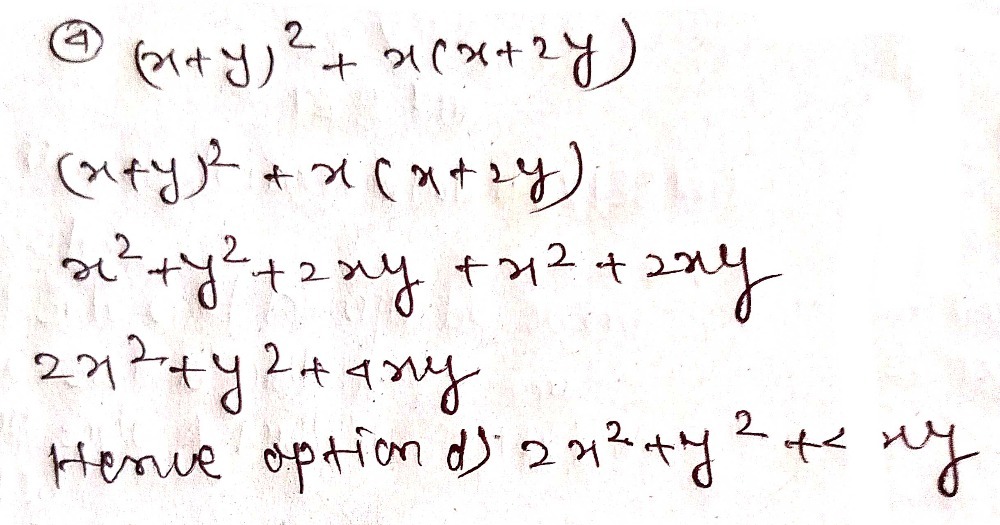 ④ (x+y)² + x(x+2y)
(x+y)² + x(x+2y)
x²+y²+2xy +x²+2xy
2x²+y²+4xy
Hence option d) 2x²+y²+4xy